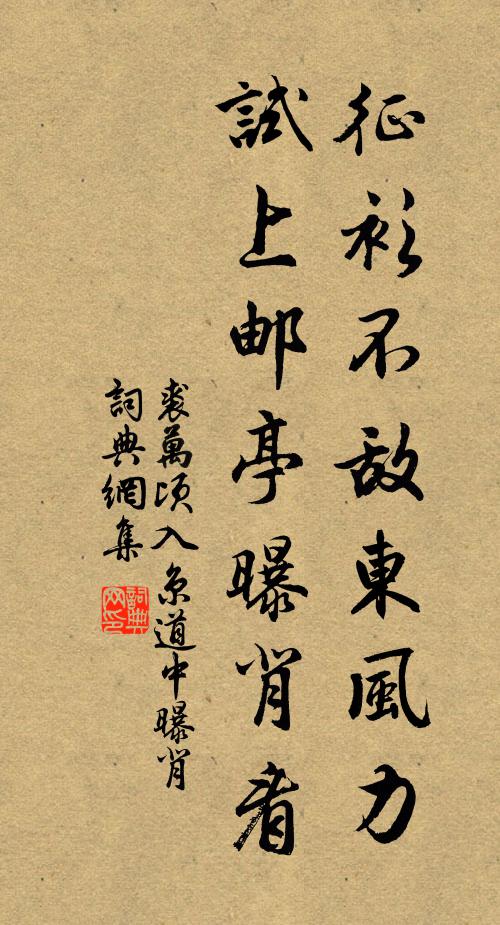 征衫不敌東風力
試上邮亭曝背看
裘萬頃入京道中曝背
詞典網集
詞典网印